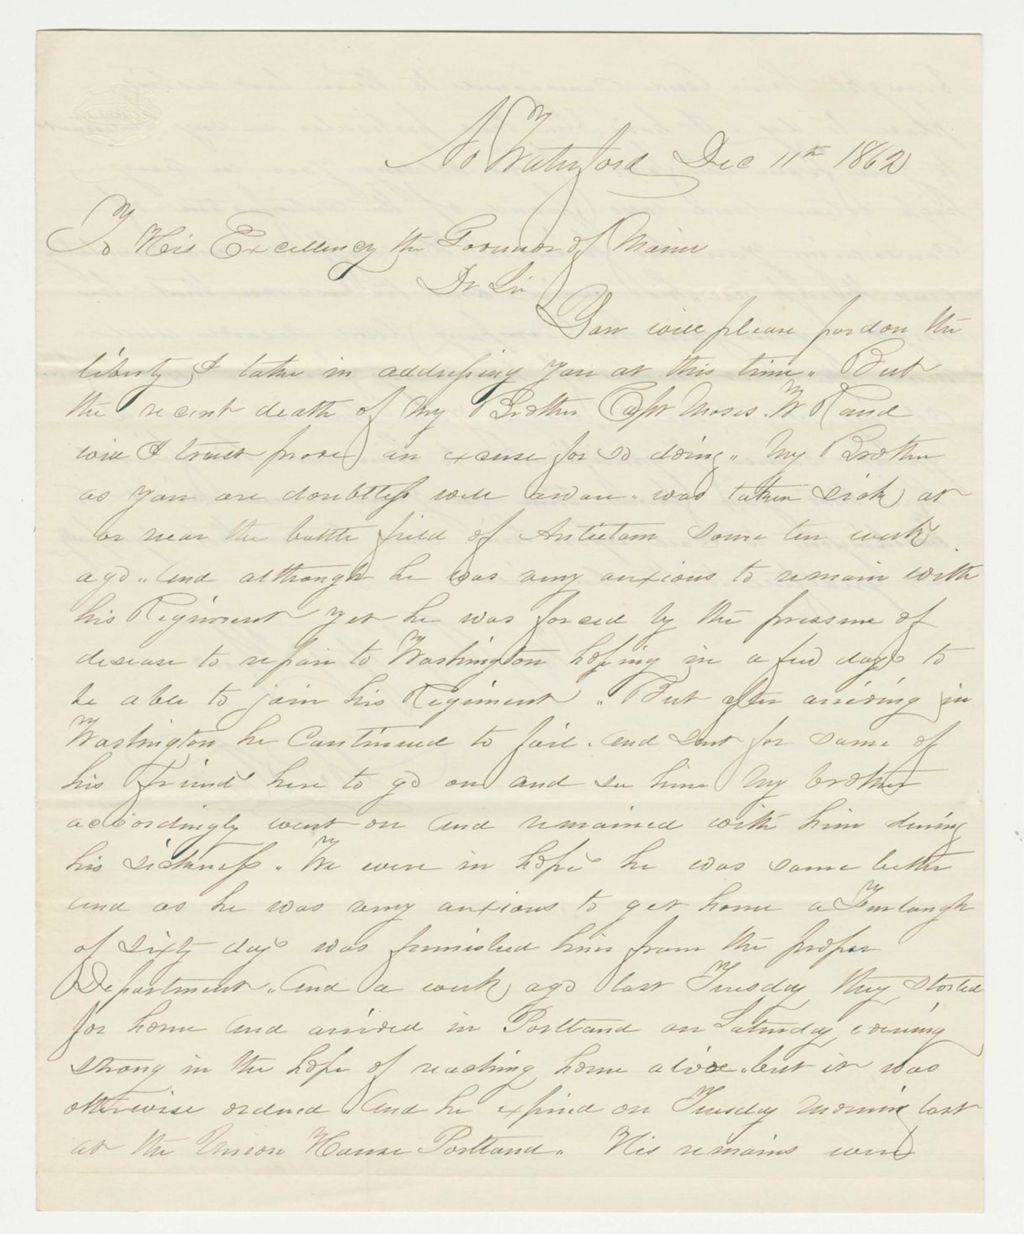 No Waterford Dec 11th 1862
To His Excellency the Governor of Maine
Dr Sir
You will please pardon the
liberty I take in addressing you at this time. But
the recent death of my Brother Capt Moses W Rand
will I trust prove an excuse for so doing. My Brother
as you are doubtless well aware was taken sick at
or near the battle field of Antietam some ten weeks
ago. And although he was very anxious to remain with
his Regiment yet he was forced by the pressure of
disease to repair to Washington hoping in a few days to
be able to join his Regiment. But after arriving in
Washington he continued to fail. and sent for some of
his friends here to go on and see him My brother
accordingly went on and remained with him during
his sickness. We were in hopes he was some better
and as he was very anxious to get home a Furlough
of sixty days was furnished him from the proper
Department. And a week ago last Tuesday they started
for home and arrived in Portland on Saturday evening
strong in the hope of reaching home alive. but it was
otherwise ordered. And he expired on Tuesday morning last
at the Union House Portland. His remains were